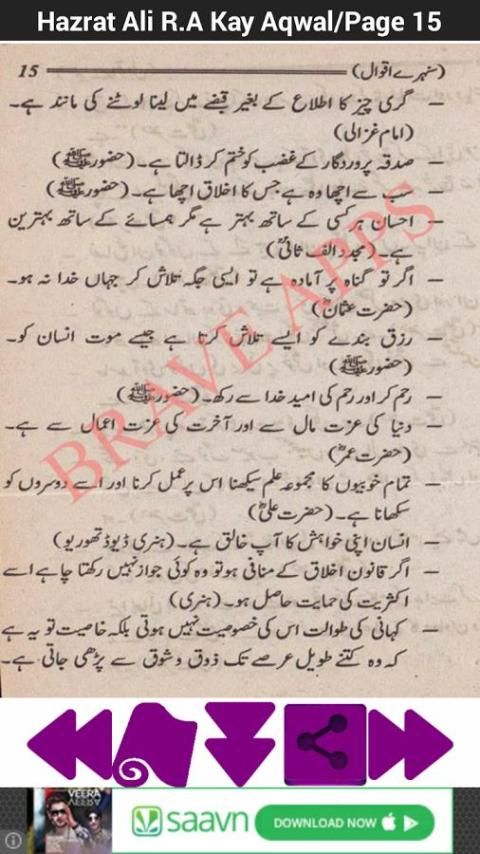 Hazrat Ali R.A Kay Aqwal/Page 15
(سنہرے اقوال) 15
— گری چیز کا اطلاع کے بغیر قبضے میں لینا لوٹنے کی مانند ہے۔
(امام غزالی)
— صدقہ پروردگار کے غضب کو ختم کر ڈالتا ہے۔ (حضور ﷺ)
— سب سے اچھا وہ ہے جس کا اخلاق اچھا ہے۔ (حضور ﷺ)
— احسان ہر کسی کے ساتھ بہتر ہے مگر ہمسائے کے ساتھ بہترین
ہے۔ (مجدد الف ثانیؒ)
— اگر تو گناہ پر آمادہ ہے تو ایسی جگہ تلاش کر جہاں خدا نہ ہو۔
(حضرت عثمانؓ)
— رزق بندے کو ایسے تلاش کرتا ہے جیسے موت انسان کو۔
(حضور ﷺ)
— رحم کر اور رحم کی امید خدا سے رکھ۔ (حضور ﷺ)
— دنیا کی عزت مال سے اور آخرت کی عزت اعمال سے ہے۔
(حضرت عمرؓ)
— تمام خوبیوں کا مجموعہ علم سیکھنا اس پر عمل کرنا اور اسے دوسروں کو
سکھانا ہے۔ (حضرت علیؓ)
— انسان اپنی خواہش کا آپ خالق ہے۔ (ہنری ڈیوڈ تھوریو)
— اگر قانون اخلاق کے منافی ہو تو وہ کوئی جواز نہیں رکھتا چاہے اسے
اکثریت کی حمایت حاصل ہو۔ (ہنری)
— کہانی کی طوالت اس کی خصوصیت نہیں ہوتی بلکہ خاصیت تو یہ ہے
کہ وہ کتنے طویل عرصے تک ذوق و شوق سے پڑھی جاتی ہے۔
BRAVE APPS
VEERA
saavn
DOWNLOAD NOW